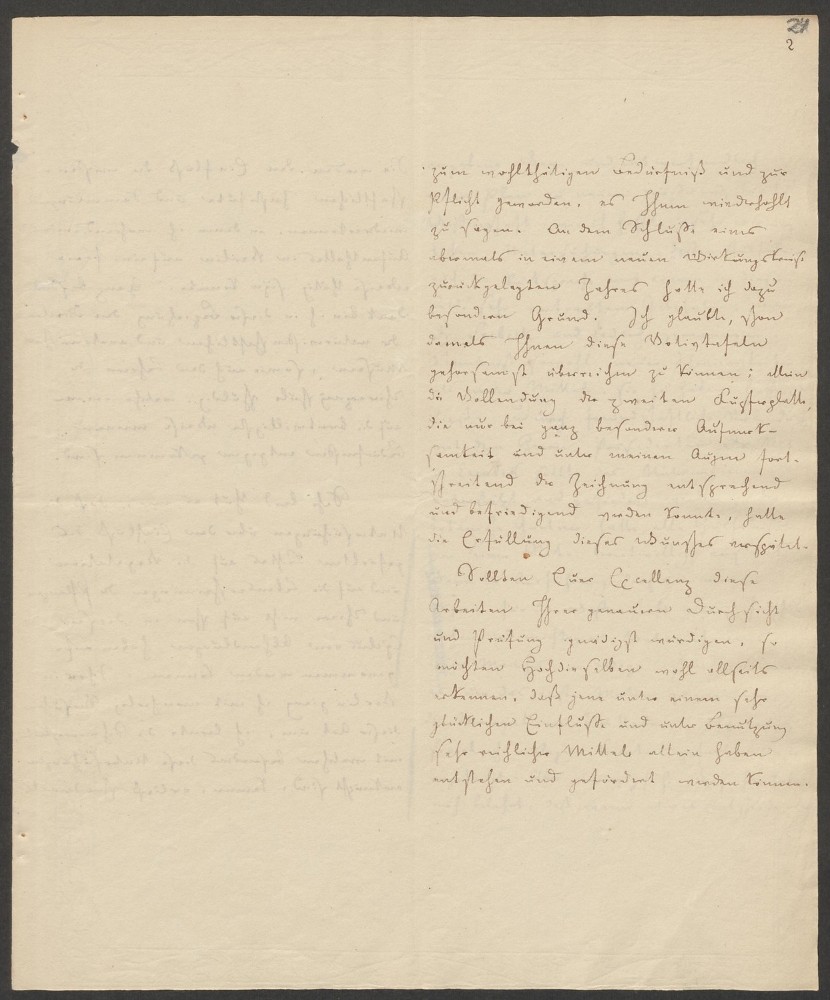 24
2
zum wohlthätigen Bedürfniß und zur
Pflicht geworden, es Ihnen wiederhohlt
zu sagen. An dem Schlusse eines
abermals in einem neuen Wirkungskreise
zurückgelegten Jahres hatte ich dazu
besondern Grund. Ich glaubte, schon
damals Ihnen diese Votivtafeln
gehorsamst überreichen zu können; allein
die Vollendung der zweiten Kupferplatte,
die nur bei ganz besonderer Aufmerk-
samkeit und unter meinen Augen fort-
schreitend der Zeichnung entsprechend
und befriedigend werden konnte, hatte
die Erfüllung dieses Wunsches verspätet.
Sollten Euer Excellenz diese
Arbeiten Ihrer genauern Durchsicht
und Prüfung gnädigst würdigen, so
möchten Hochdieselben wohl allseits
erkennen, daß jene unter einem sehr
glücklichen Einflusse und unter Benutzung
sehr reichlicher Mittel allein haben
entstehen und gefördert werden können.